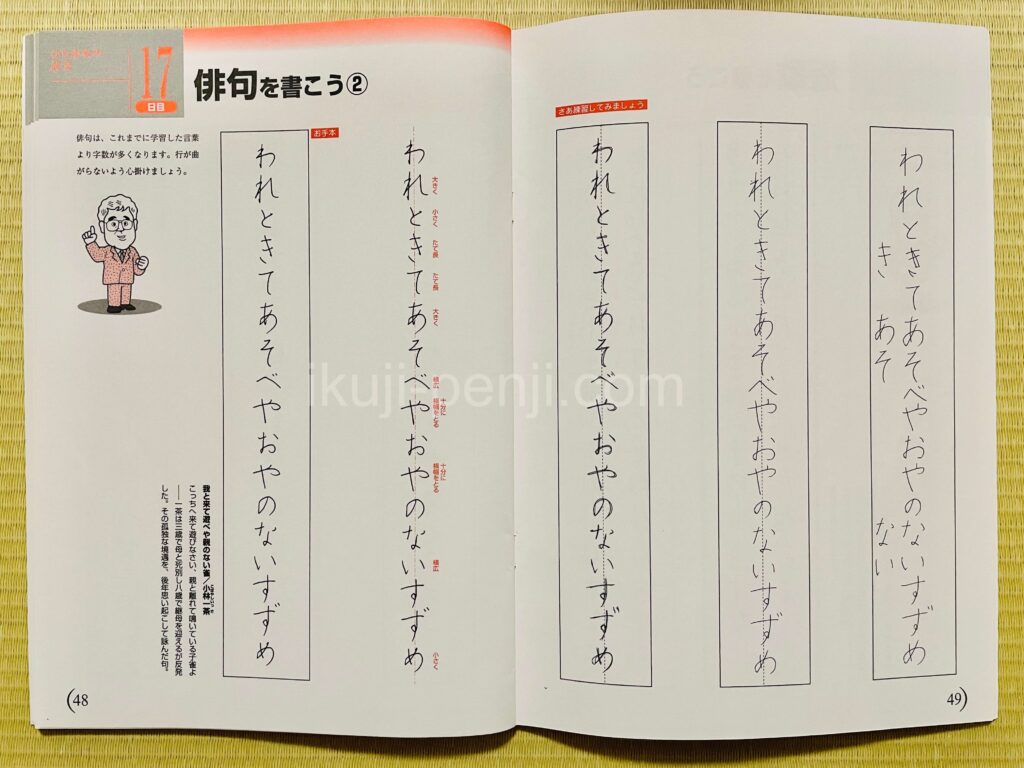 17
日目
俳句を書こう②
俳句は、これまでに学習した言葉
より字数が多くなります。行が曲
がらないよう心掛けましょう。
お手本
われときてあそべやおやのないすずめ
われときてあそべやおやのないすずめ
大きく
小さく
たて長
たて長
大きく
横広
十分に
横幅をとる
十分に
横幅をとる
横広
小さく
我と来て遊べや親のない雀／小林一茶
こっちへ来て遊びなさい、親と離れて鳴いている子雀よ
──一茶は三歳で母と死別し八歳で継母を迎えるが反発
した。その孤独な境遇を、後年思い起こして詠んだ句。
(48
さあ練習してみましょう
われときてあそべやおやのないすずめ
われときてあそべやおやのないすずめ
われときてあそべやおやのないすずめ
き あそ ない
49)
ikuji-penji.com